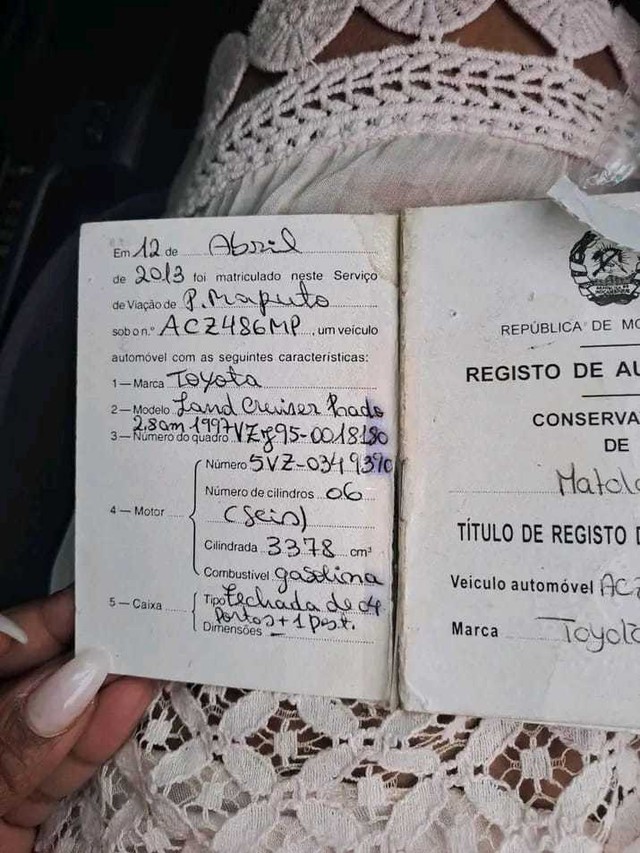 Em 12 de Abril
de 2013 foi matriculado neste Serviço
de Viação de P. Maputo
sob o n.º ACZ486MP, um veículo
automóvel com as seguintes características:
1 — Marca Toyota
2 — Modelo Land Cruiser Prado
1997
3 — Número do quadro VZJ95-0018180
Número 5VZ-0349390
Número de cilindros 06
4 — Motor (Seis)
Cilindrada 3378 cm³
Combustível gasolina
5 — Caixa Tipo fechada de 04
portas + 1 post.
Dimensões —
REPÚBLICA DE MO
REGISTO DE AU
CONSERVA
DE
Matola
TÍTULO DE REGISTO D
Veículo automóvel AC
Marca Toyota